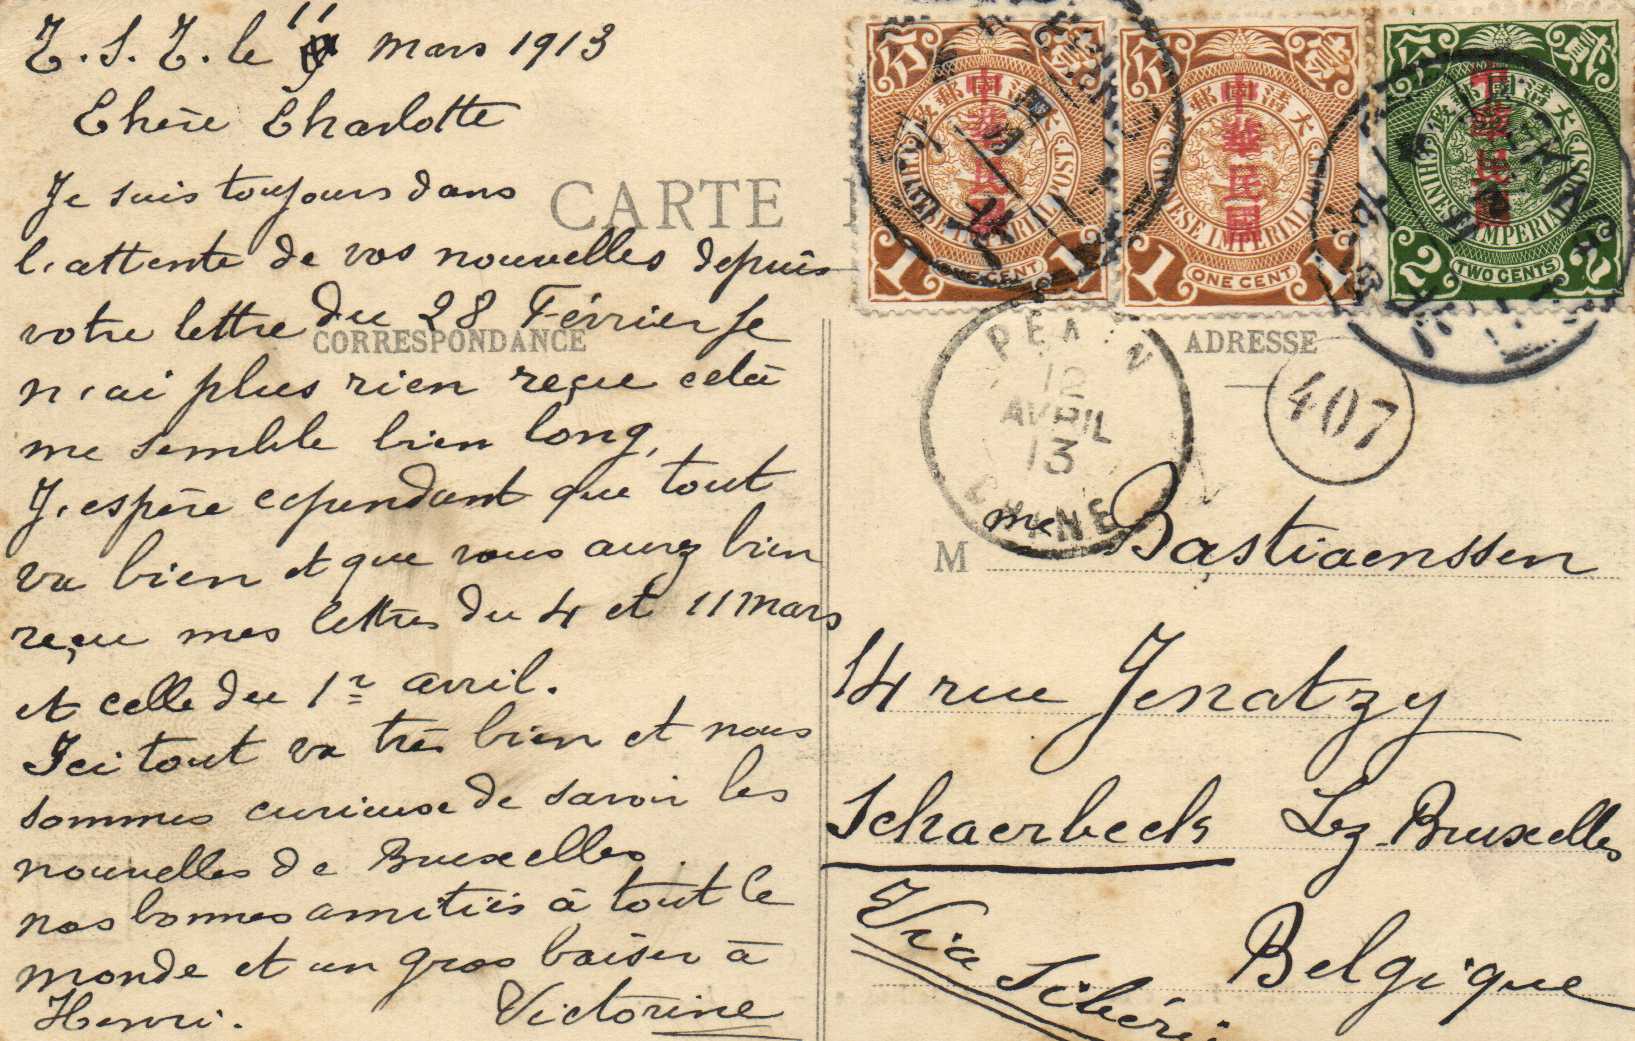 T. S. T. le 11 mars 1913
Chère Charlotte
Je suis toujours dans
l'attente de vos nouvelles depuis
votre lettre du 28 Février je
n'ai plus rien reçu celà
me semble bien long,
J'espère cependant que tout
va bien et que vous aurez bien
reçu mes lettres du 4 et 11 mars
et celle du 1r avril.
Ici tout va très bien et nous
sommes curieuse de savoir les
nouvelles de Bruxelles.
nos bonnes amitiés à tout le
monde et un gros baiser à
Henri. Victorine
CARTE
CORRESPONDANCE
ADRESSE
大清郵政
中華民國
CHINESE IMPERIAL POST
1 ONE CENT 1
大清郵政
中華民國
CHINESE IMPERIAL POST
1 ONE CENT 1
大清郵政
中華民國
CHINESE IMPERIAL POST
2 TWO CENTS 2
PEKIN
12
AVRIL
13
CHINE
407
M me Bastiaenssen
14 rue Jenatzy
Schaerbeck Lez-Bruxelles
Belgique
Via Sibéri